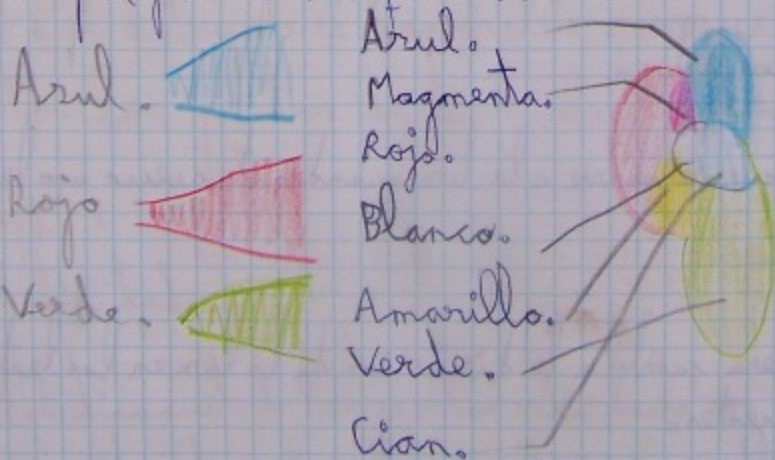 Azul.
Rojo
Verde.
Azul.
Magmenta.
Rojo.
Blanco.
Amarillo.
Verde.
Cian.